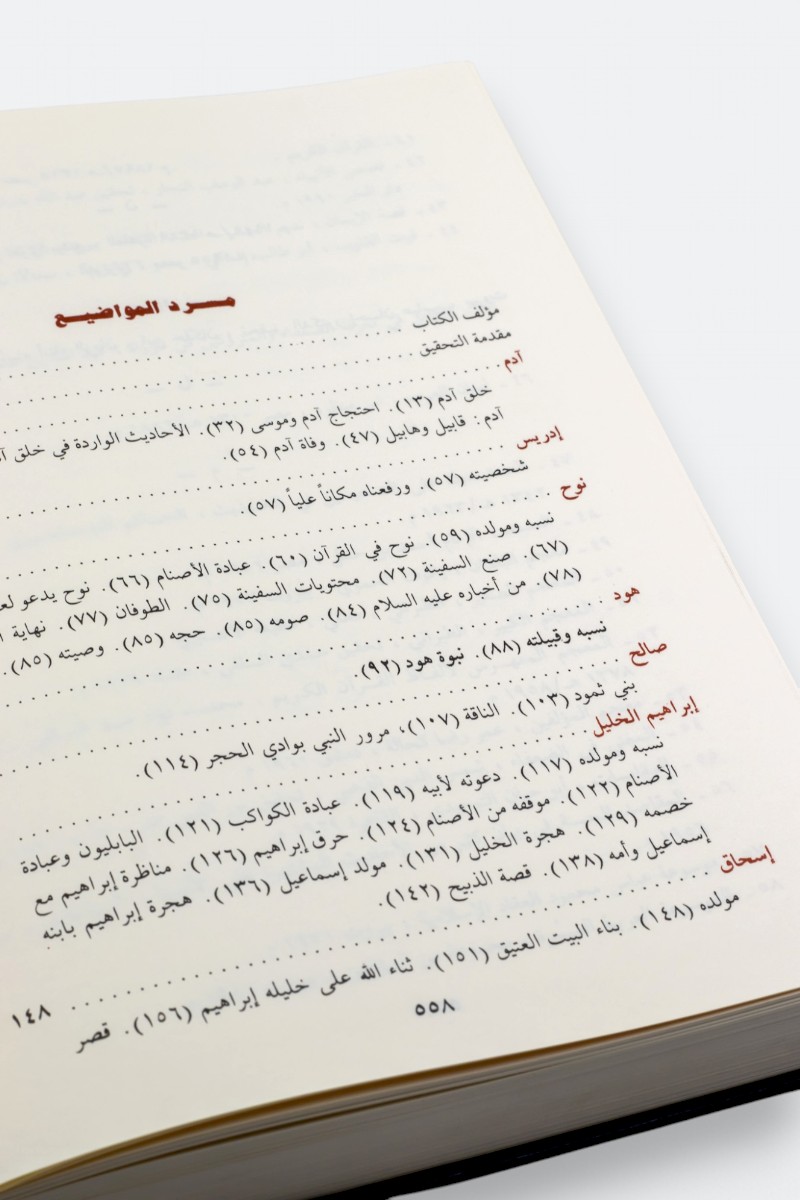 مسرد المواضيع
مؤلف الكتاب
مقدمة التحقيق
آدم
خلق آدم (١٣). احتجاج آدم وموسى (٣٢). الأحاديث الواردة في خلق
آدم: قابيل وهابيل (٤٧). وفاة آدم (٥٤).
إدريس
شخصيته (٥٧). ورفعناه مكاناً علياً (٥٧).
نوح
نسبه ومولده (٥٩). نوح في القرآن (٦٠). عبادة الأصنام (٦٦). نوح يدعو
(٦٧). صنع السفينة (٧٢). محتويات السفينة (٧٥). الطوفان (٧٧). نهاية
(٧٨). من أخباره عليه السلام (٨٤). صومه (٨٥). حجه (٨٥). وصيته (٨٥).
هود
نسبه وقبيلته (٨٨). نبوة هود (٩٢).
صالح
بني ثمود (١٠٣). الناقة (١٠٧)، مرور النبي بوادي الحجر (١١٤).
إبراهيم الخليل
نسبه ومولده (١١٧). دعوته لأبيه (١١٩). عبادة الكواكب (١٢١). البابليون وعبادة
الأصنام (١٢٢). موقفه من الأصنام (١٢٤). حرق إبراهيم (١٢٦). مناظرة إبراهيم مع
خصمه (١٢٩). هجرة الخليل (١٣١). مولد إسماعيل (١٣٦). هجرة إبراهيم بابنه
إسماعيل وأمه (١٣٨). قصة الذبيح (١٤٢).
إسحاق ١٤٨
مولده (١٤٨). بناء البيت العتيق (١٥١). ثناء الله على خليله إبراهيم (١٥٦). قصر
٥٥٨